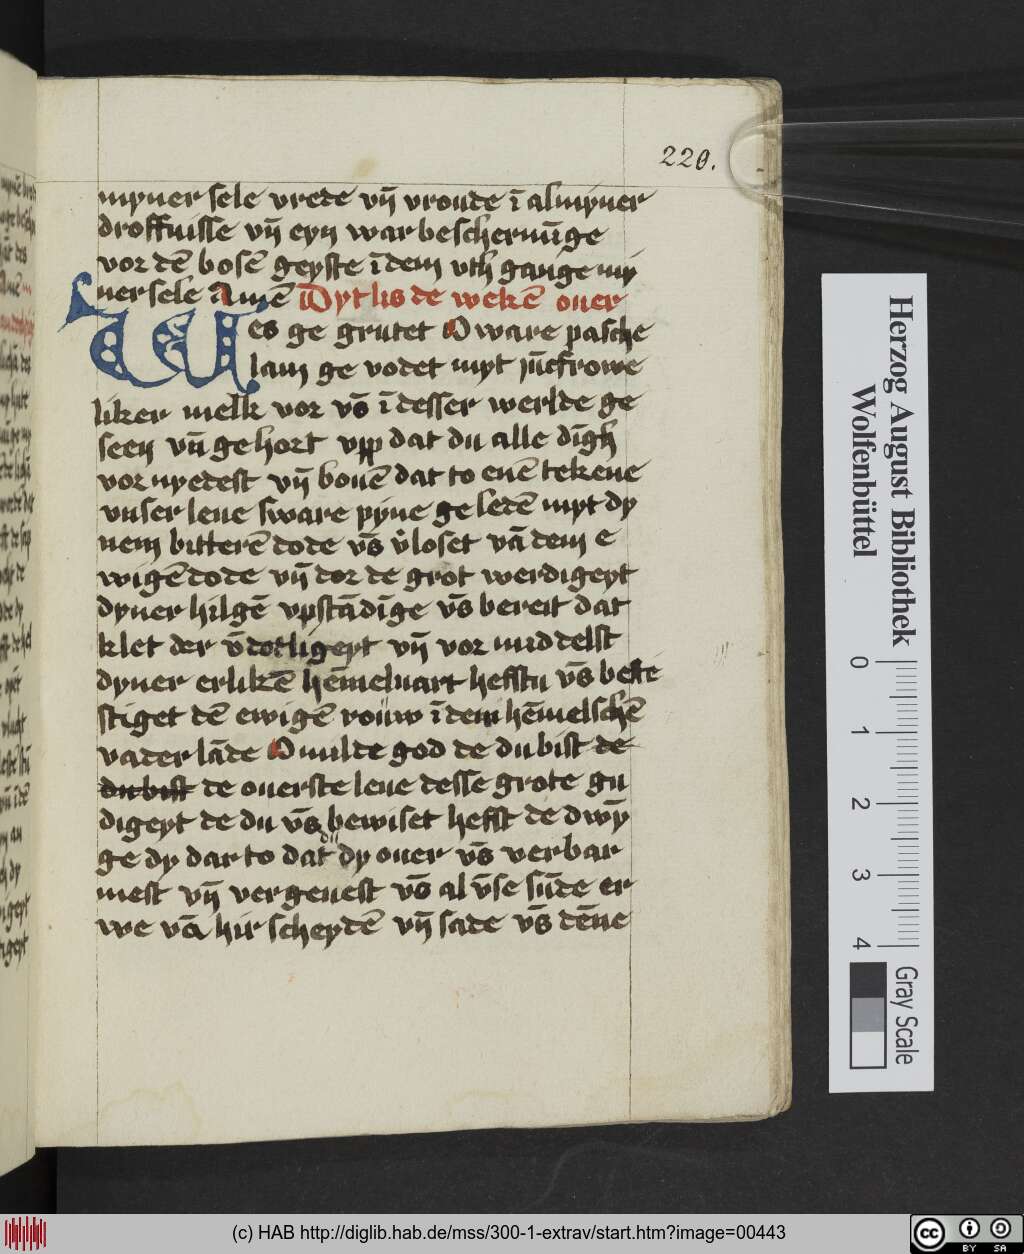 220.
myner sele vrede vn̄ vroude ī al myner
droffnisse vn̄ eyn war beschermūge
vor dē bosē geyste ī dem vth gange my
ner sele Amē Dyt lis de wekē ouer
Wes ge grutet O ware pasche
lam ge vodet myt jūcfrowe
liker melk vor vs̄ ī desser werlde ge
seen vn̄ ge hort vpp dat du alle dīgh
vor nyedest vn̄ bouē dat to enē tekene
vnser leue sware pyne ge ledē myt dy
nem bitterē dode vs̄ v̓loset vā dem e
wigē dode vn̄ dor de grot werdigeyt
dyner hilgē vpstādīge vs̄ bereit dat
klet der v̄dotligeyt vn̄ vor middelst
dyner erlikē hēmeluart hefftu vs̄ beste
stiget dē ewigē rouw ī dem hēmelschē
vader lāde O milde god de du bist de
du bist de ouerste leue desse grote gu
digeyt de du vs̄ bewiset hefft de dwȳ
ge dy dar to dat du dy ouer vs̄ verbar
mest vn̄ vergeuest vs̄ al v̄se sūde er
we vā hir scheydē vn̄ sade vs̄ dēne
Herzog August Bibliothek
Wolfenbüttel
0 1 2 3 4
Gray Scale
(c) HAB http://diglib.hab.de/mss/300-1-extrav/start.htm?image=00443
cc BY SA